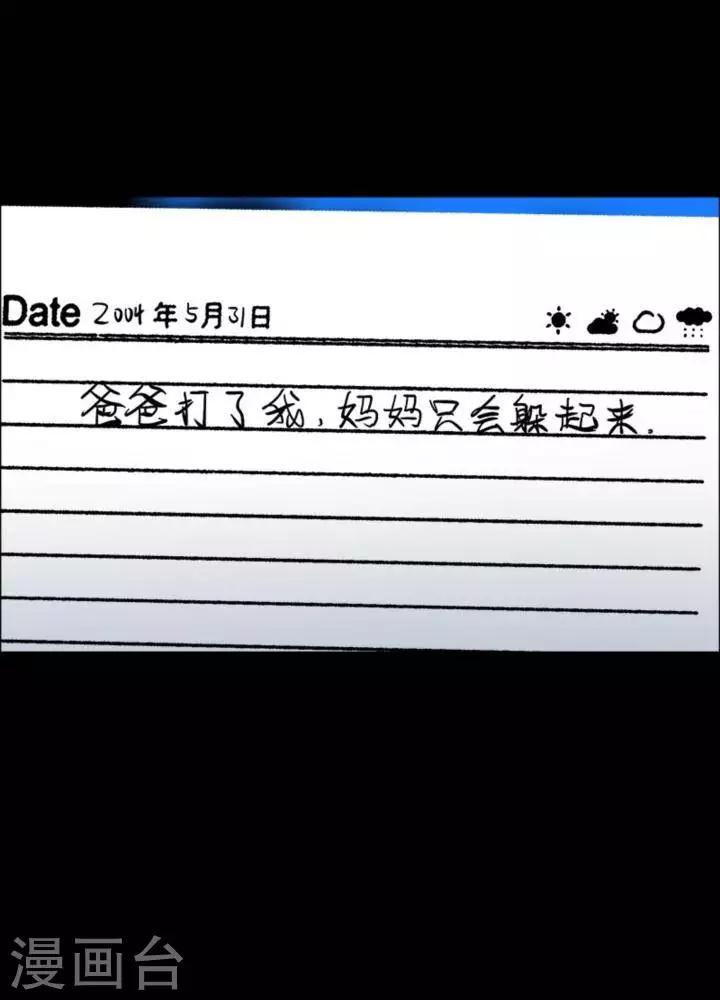 Date 2004年5月31日
爸爸打了我,妈妈只会躲起来.
漫画台